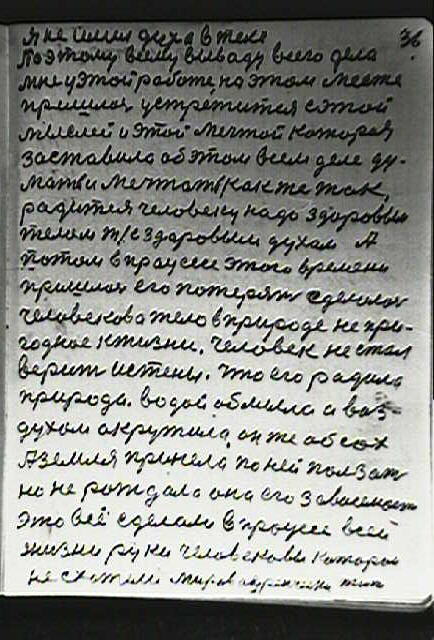 36
я не имел духа в теле
Поэтому всему выводу всего дела
мне у этой работе, на этом месте
пришлос устретится с этой
мыслей и этой мечтой которая
заставила об этом всем деле ду-
мать и мечтать как же так,
радится человеку надо здоровым
телом т/с здоровым духам А
потом в процесе этого времени
пришлос его потерят сделалос
человекова тело в природе не при-
годное к жизни. Человек не стал
верит истены. что его радила
природа. водой обмыла и воз-
духом акружила, он же обсох
А земля принела по ней ползат
но не рождала она его зависимост
это всё сделали в процесе всей
жизни руки человековы которои
не схотели